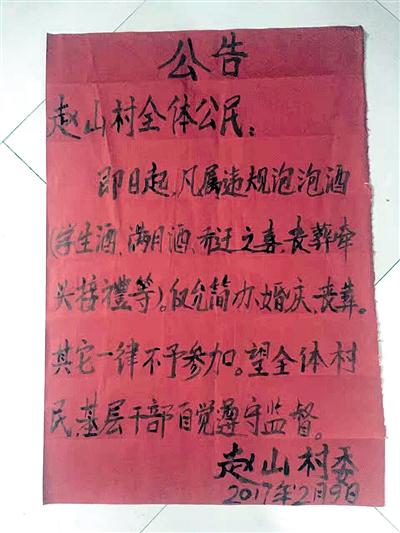 公告
赵山村全体公民:
即日起,凡属违规泡泡酒
(学生酒、满月酒、乔迁之喜、丧葬牵
头接禮等)。仅允简办、婚庆、丧葬。
其它一律不予参加。望全体村
民、基层干部自觉遵守监督。
赵山村委
2017年2月9日